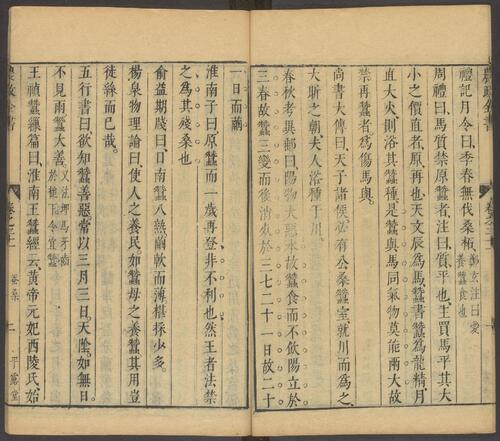 農政全書
禮記月令曰季春無伐桑柘鄭玄注曰愛養蠶食也
周禮曰馬質禁原蠶者注曰質平也主買馬平其大
小之價直者原再也天文辰為馬蠶書蠶為龍精月
直大火則浴其蠶種是蠶與馬同氣物莫能兩大故
禁再蠶者為傷馬與
尚書大傳曰天子諸侯必有公桑蠶室就川而為之
大昕之朝夫人浴種于川
春秋考異郵曰陽物大惡水故蠶食而不飲陽立於
三春故蠶三變而後消死於三七二十一日故二十
一日而繭
淮南子曰原蠶而一歲再登非不利也然王者法禁
之為其殘桑也
俞益期牋曰日南蠶八熟繭軟而薄椹採少多
楊泉物理論曰使人之養民如蠶母之養蠶其用豈
徒絲而已哉
五行書曰欲知蠶善惡常以三月三日天陰如無日
不見雨蠶大善又法埋馬牙齒於槌下令宜蠶
王禎蠶繅篇曰淮南王蠶經云黃帝元妃西陵氏始
農政全書
卷之三十一
蠶桑
一
平露堂